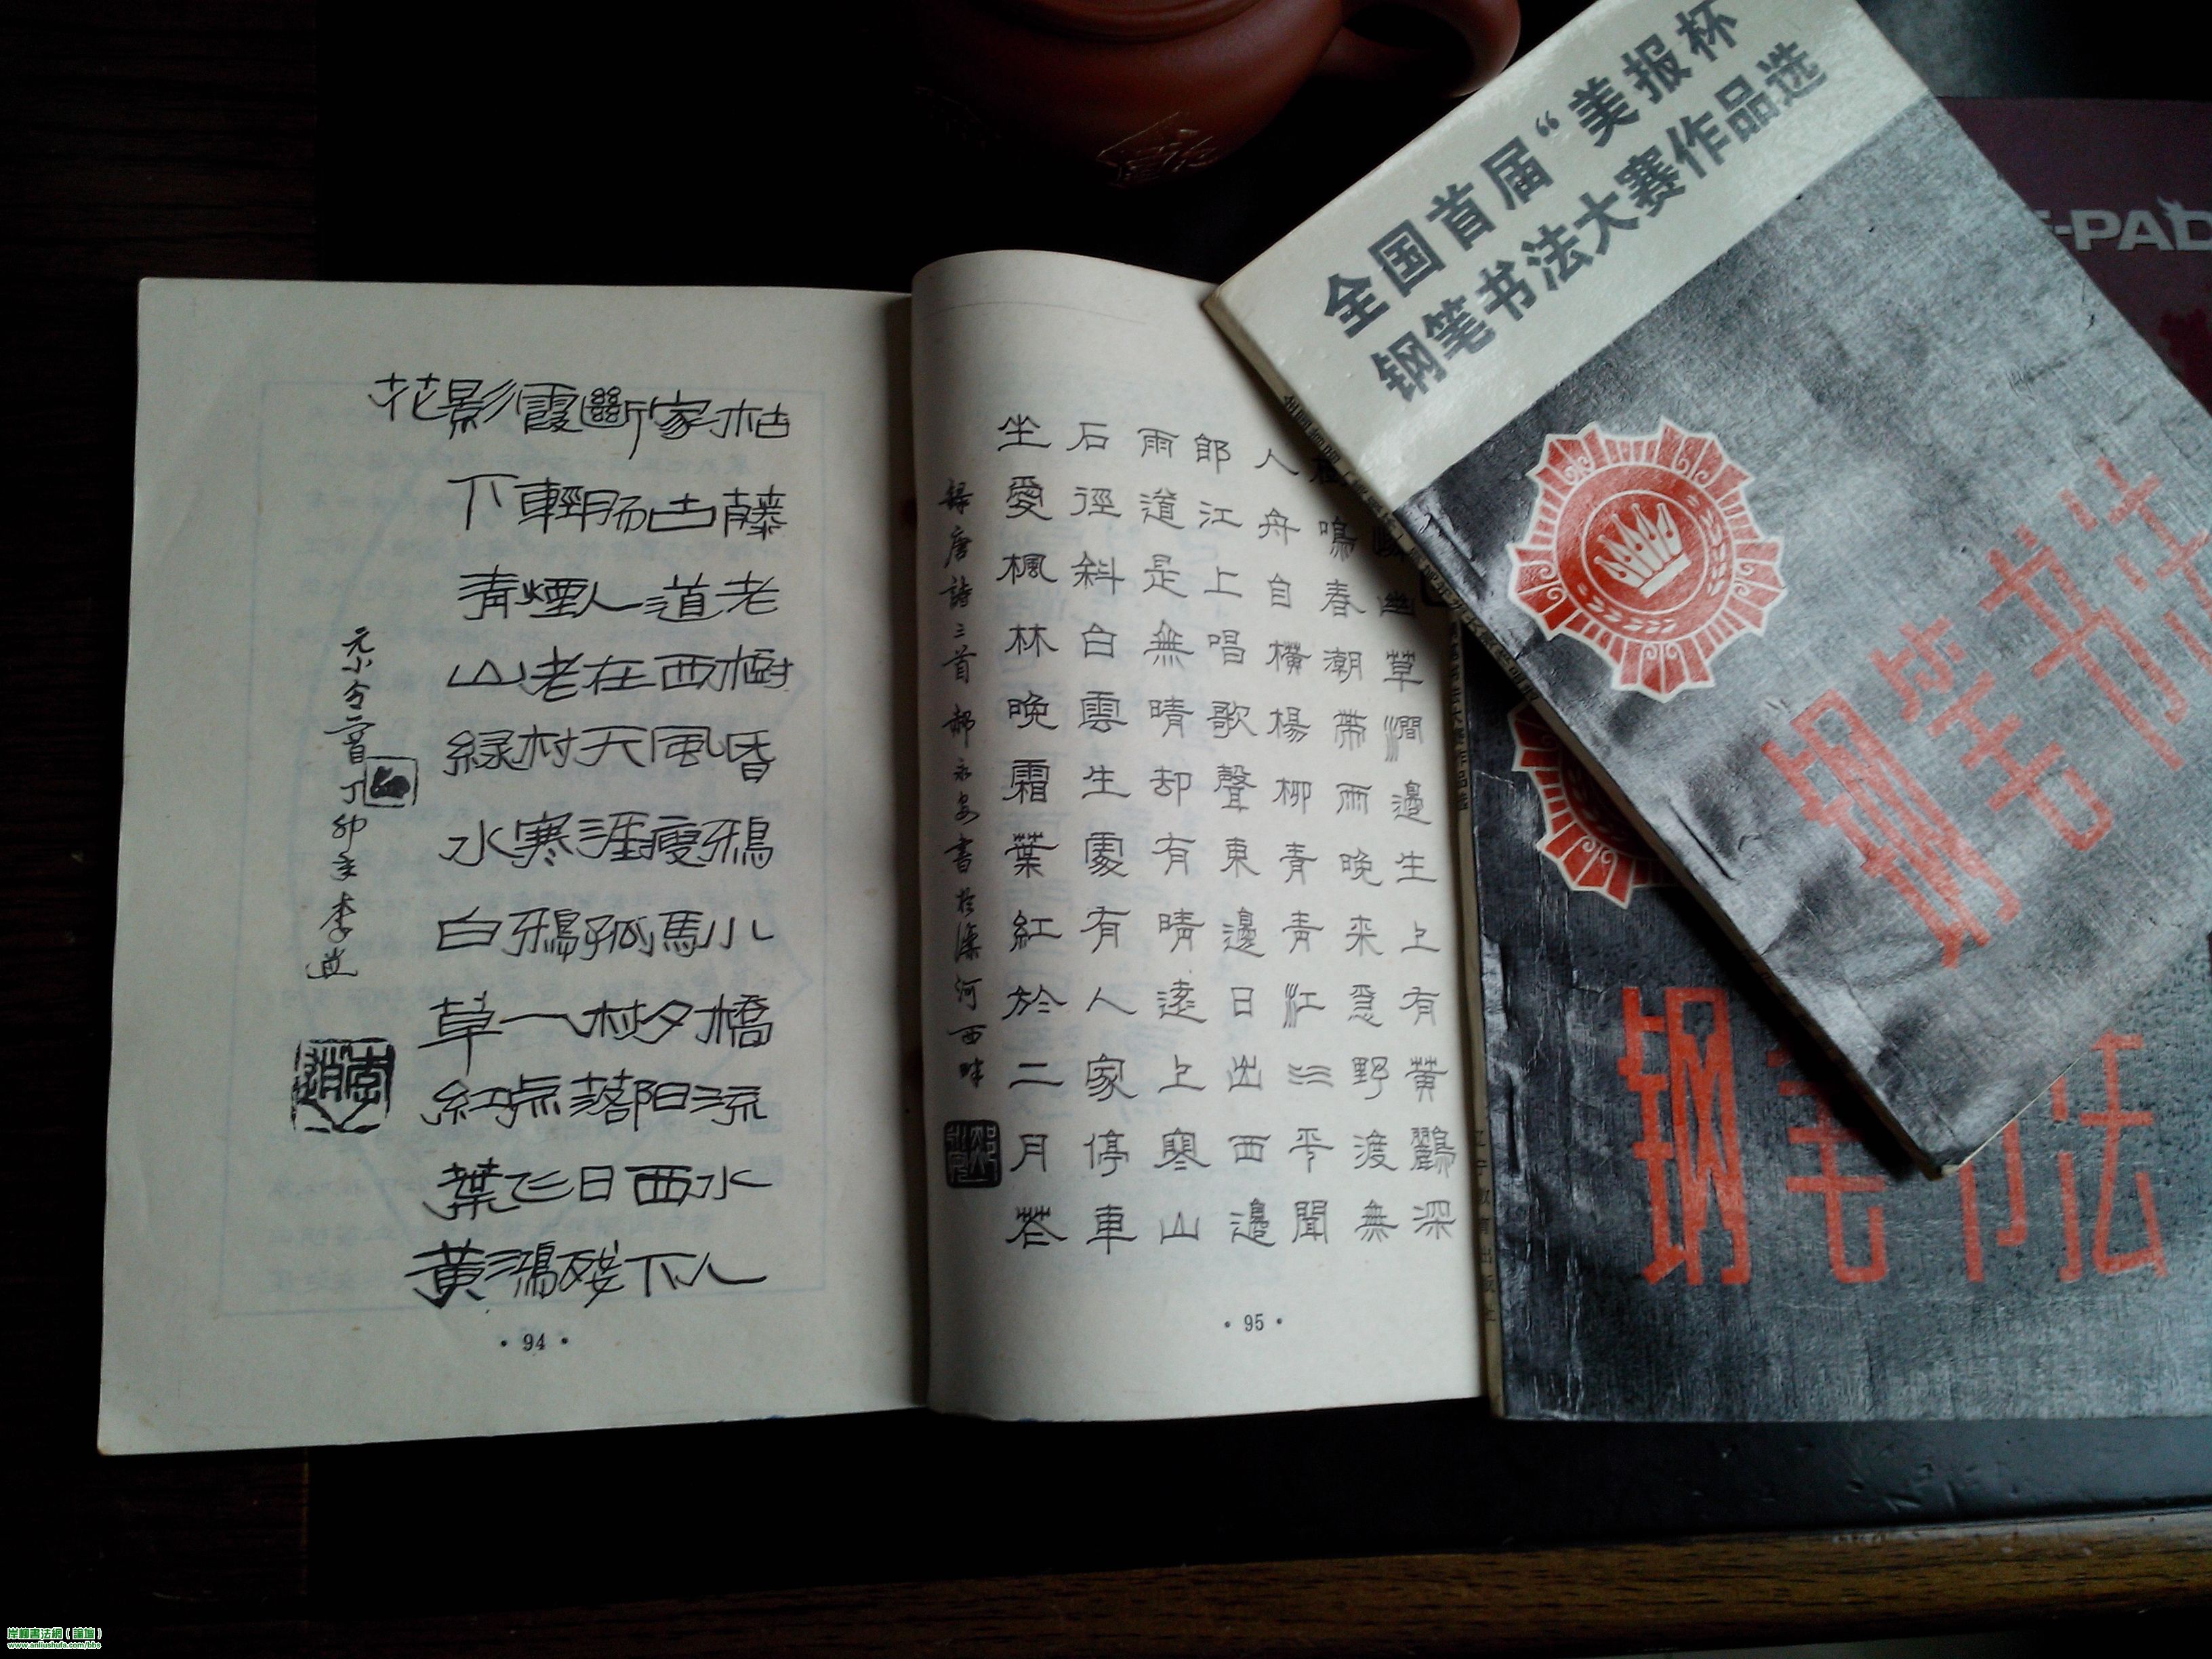 枯藤老樹昏鴉小橋流水人
家古道西風瘦馬夕陽西下
斷腸人在天涯孤村落日殘
霞輕煙老村寒鴉一点飞鴻
影下青山緑水白草紅葉黃
花
元小令二首丁卯年李逍
• 94 •
幽草澗邊生上有黃鸝深
鳴春潮帶雨晚来急野渡無
人舟自橫楊柳青青江水平聞
郎江上唱歌聲東邊日出西邊
雨道是無晴却有晴遠上寒山
石徑斜白雲生處有人家停車
坐愛楓林晚霜葉紅於二月花
錄唐詩三首郝永安書於灤河西畔
• 95 •
全国首届“美报杯
钢笔书法大赛作品选
钢笔书法
钢笔书法
E-PAD
岸柳書法網(論壇)
www.anliushufa.com/bbs